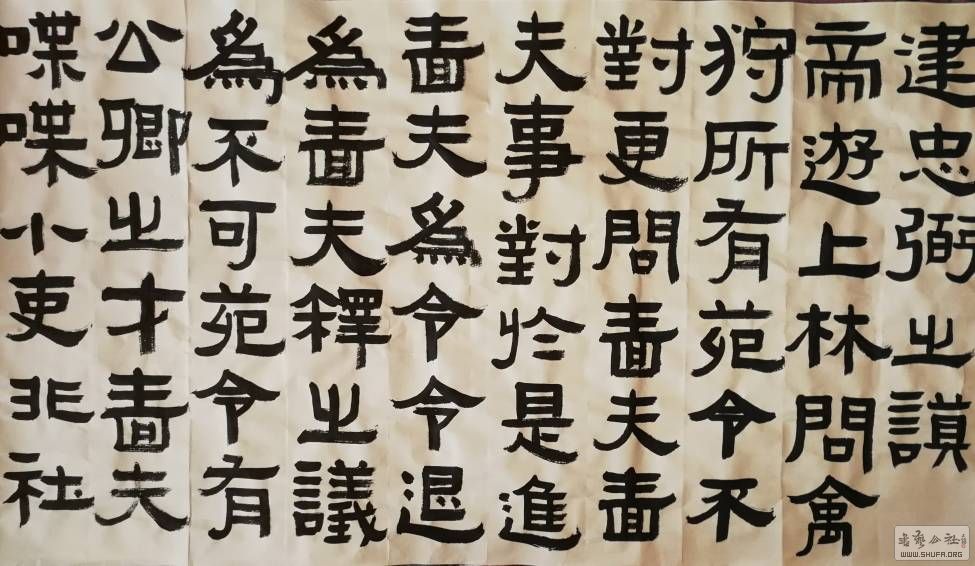 建忠弼之謨
帝遊上林問禽
狩所有苑令不
對更問嗇夫嗇
夫事對於是進
嗇夫為令令退
為嗇夫釋之議
為不可苑令有
公卿之才嗇夫
喋喋小吏非社
书艺公社
WWW.SHUFA.ORG